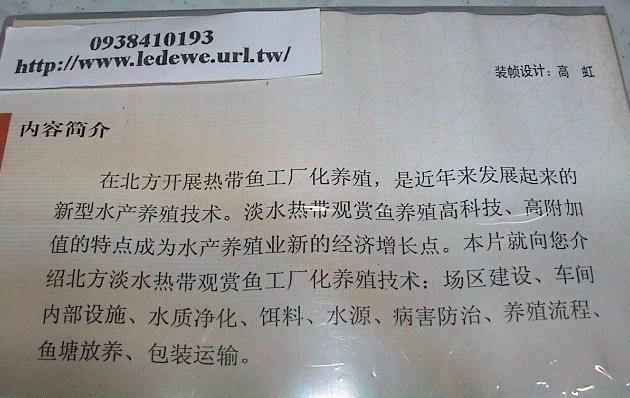 0938410193
http://www.ledewe.url.tw/
装帧设计：高 虹
内容简介
在北方开展热带鱼工厂化养殖，是近年来发展起来的
新型水产养殖技术。淡水热带观赏鱼养殖高科技、高附加
值的特点成为水产养殖业新的经济增长点。本片就向您介
绍北方淡水热带观赏鱼工厂化养殖技术：场区建设、车间
内部设施、水质净化、饵料、水源、病害防治、养殖流程、
鱼塘放养、包装运输。